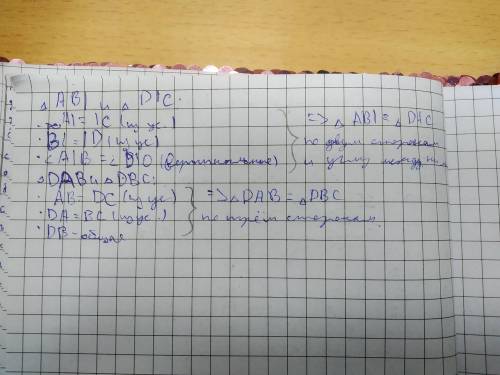 △ ABI и △ DIC:
· AI = IC (по ус.)
· BI = ID (по ус)
· ∠AIB = ∠DIC (вертикальные)
=> △ ABI = △ DIC
по двум сторонам
и углу между ним
△DAB и △ DBC:
· AB = DC (по ус)
· DA = BC (по ус.)
· DB - общая
=> △ DAB = △ DBC
по трём сторонам.